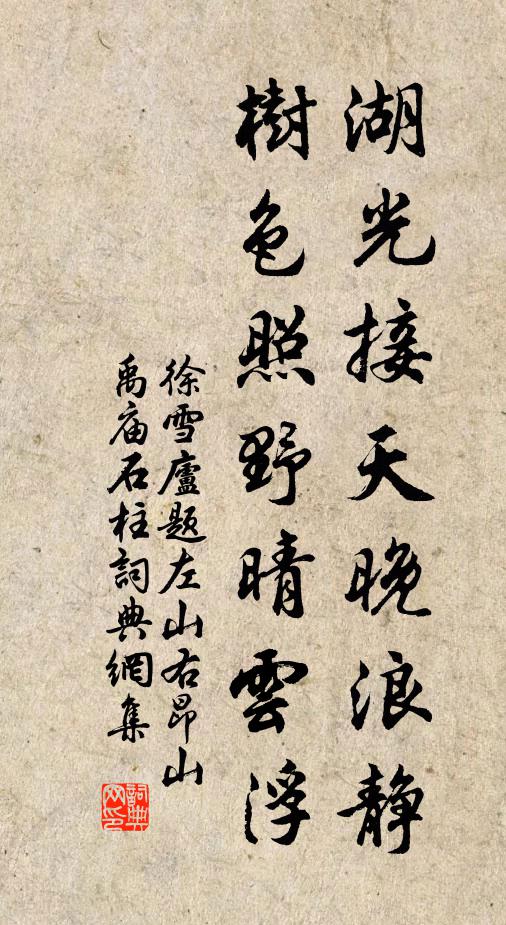 湖光接天晚浪静
樹色照野晴雲浮
徐雪廬题左山右昂山
禹庙石柱詞典網集
詞典网印